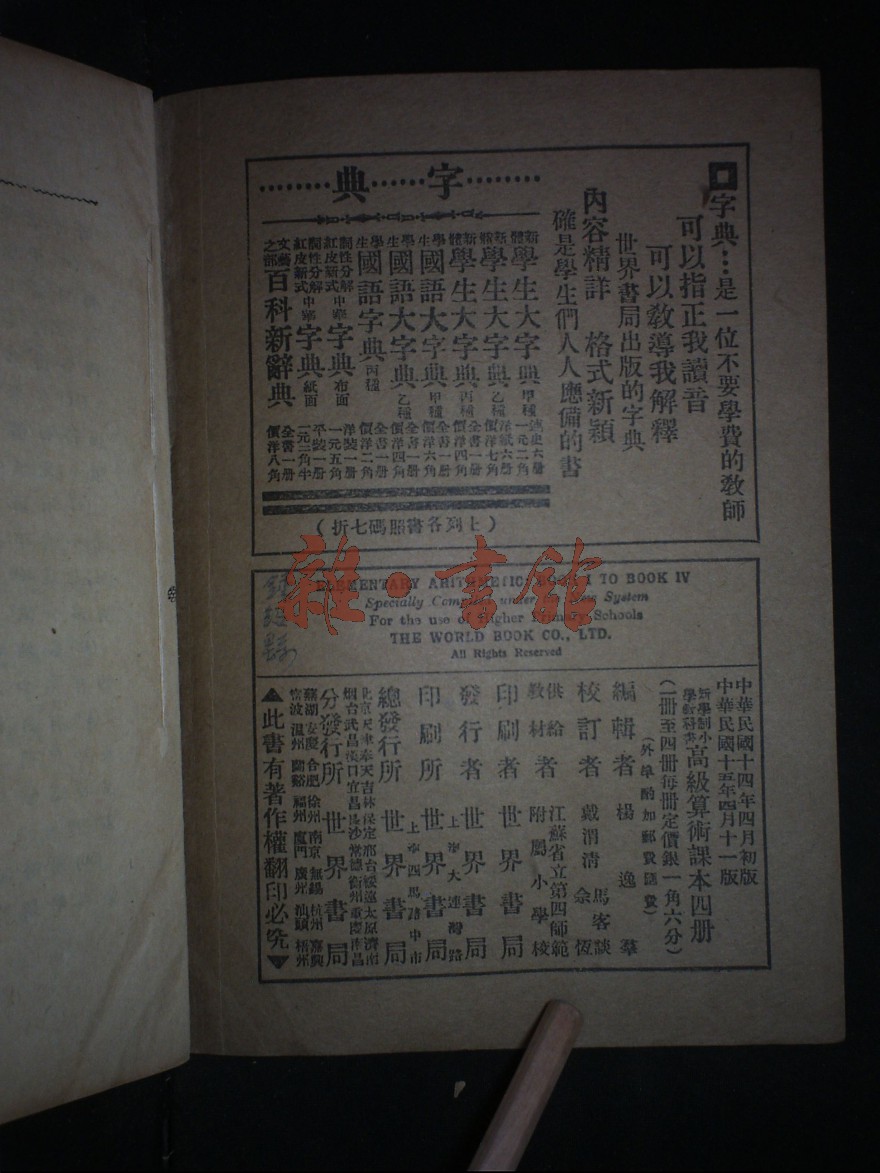 字典…是一位不要學費的教師
可以指正我讀音
可以教導我解釋
世界書局出版的字典
內容精詳 格式新穎
確是學生們人人應備的書
字典
新體學生大字典 甲種
新體學生大字典 乙種
新體學生大字典 丙種 全書一册價洋四角
學生國語大字典 甲種 全書一册價洋六角
學生國語大字典 乙種 全書一册價洋四角
學生國語字典 丙種 全書一册價洋二角
詞性分解紅皮新式中華字典 布面 洋裝一册一元五角
詞性分解紅皮新式中華字典 紙面 平裝一册一元二角半
文藝之部百科新辭典 全書一册價洋八角
(上列各書照碼七折)
雜·書館
ELEMENTARY ARITHMETIC BOOK I TO BOOK IV
Specially Compiled under System
For the use of Higher Primary Schools
THE WORLD BOOK CO., LTD.
All Rights Reserved
中華民國十四年四月初版
中華民國十五年四月十一版
新學制小學教科書高級算術課本四册
(一册至四册每册定價銀一角六分)
(外埠酌加郵費匯費)
編輯者 楊逸羣
校訂者 戴渭清 馬客談 余恆
供給教材者 江蘇省立第四師範附屬小學校
印刷者 世界書局
發行者 世界書局
上海大連灣路
印刷所 世界書局
上海四馬路中市
總發行所 世界書局
北京天津奉天吉林保定邢台綏遠太原濟南
烟台武昌漢口宜昌長沙常德衡州重慶南昌
分發行所 世界書局
蕪湖安慶合肥徐州南京無錫杭州嘉興
寧波溫州蘭谿福州廈門廣州汕頭梧州
▲此書有著作權翻印必究▼